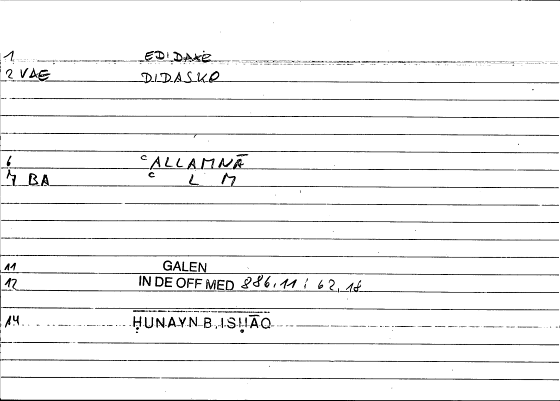 1 EDIDAXE
2 VAE DIDASKO
6 ᶜALLAMNĀ
7 BA ᶜ L M
11 GALEN
12 IN DE OFF MED 886,11 ; 62,18
14 ḤUNAYN B. ISḤĀQ